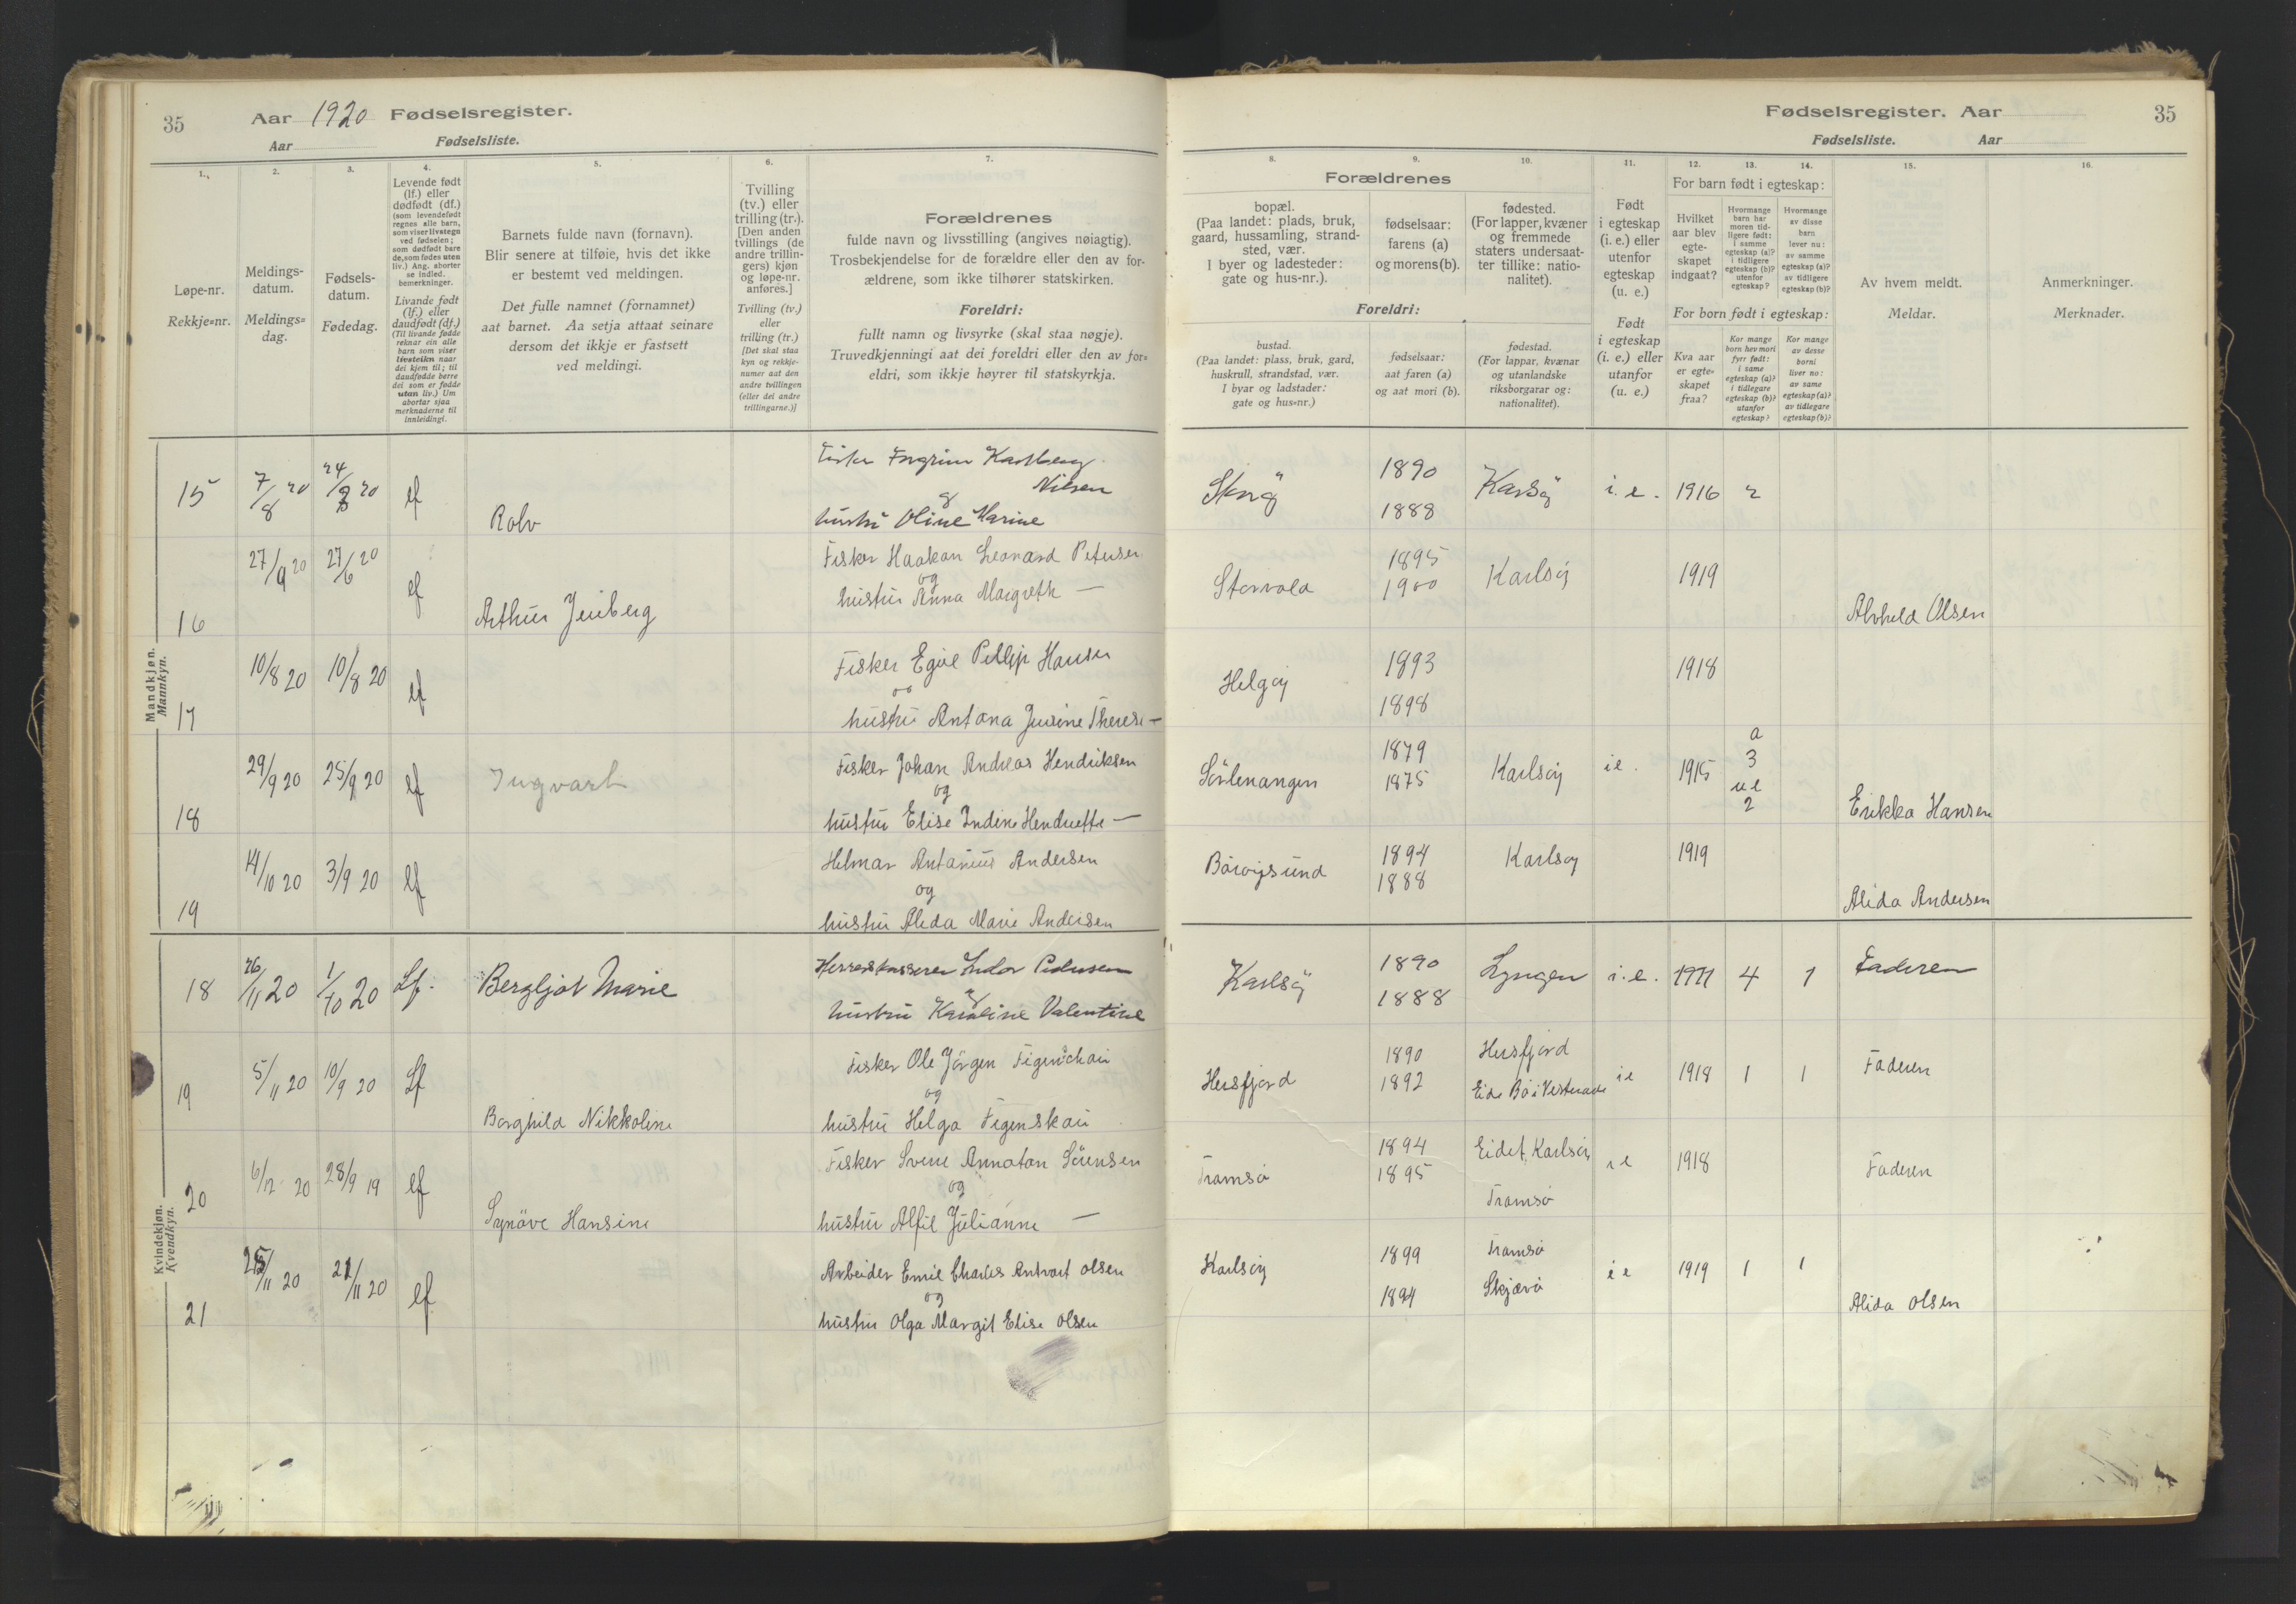 35 Aar 1920 Fødselsregister.
Aar Fødselsliste.
1.
Løpe-nr.
Rekkje=nr.
2.
Meldings-
datum.
Meldings=
dag.
3.
Fødsels-
datum.
Fødedag.
4.
Levende født
(lf.) eller
dødfødt (df.)
(som levendefødt
regnes alle barn,
som viser livstegn
ved fødselen;
som dødfødt bare
de, som fødes uten
liv.) Ang. aborter
se indled.
bemerkninger.
Livande født
(lf.) eller
daudfødt (df.)
(Til livande fødde
reknar ein alle
barn som viser
livsteikn naar
dei kjem til; til
daudfødde berre
dei som er fødde
utan liv.) Um
abortar sjaa
merknaderne til
innleidingi.
5.
Barnets fulde navn (fornavn).
Blir senere at tilføie, hvis det ikke
er bestemt ved meldingen.
Det fulle namnet (fornamnet)
aat barnet. Aa setja attaat seinare
dersom det ikkje er fastsett
ved meldingi.
6.
Tvilling
(tv.) eller
trilling (tr.).
[Den anden
tvillings (de
andre trillin-
gers) kjøn
og løpe-nr.
anføres.]
Tvilling (tv.)
eller
trilling (tr.)
[Det skal staa
kyn og rekkje-
numer aat den
andre tvillingen
(eller dei andre
trillingarne.)]
7.
Forældrenes
fulde navn og livsstilling (angives nøiagtig).
Trosbekjendelse for de forældre eller den av for-
ældrene, som ikke tilhører statskirken.
Foreldri:
fullt namn og livsyrke (skal staa nøgje).
Truvedkjenningi aat dei foreldri eller den av for=
eldri, som ikkje høyrer til statskyrkja.
Fødselsregister. Aar 35
Fødselsliste. Aar
8.
Forældrenes
bopæl.
(Paa landet: plads, bruk,
gaard, hussamling, strand-
sted, vær.
I byer og ladesteder:
gate og hus-nr.).
Foreldri:
bustad.
(Paa landet: plass, bruk, gard,
huskrull, strandstad, vær.
I byar og ladstader:
gate og hus=nr.)
9.
fødselsaar:
farens (a)
og morens (b).
fødselsaar:
aat faren (a)
og aat mori (b).
10.
fødested.
(For lapper, kvæner
og fremmede
staters undersaat-
ter tillike: natio-
nalitet).
fødestad.
(For lappar, kvænar
og utanlandske
riksborgarar og:
nationalitet).
11.
Født
i egteskap
(i. e.) eller
utenfor
egteskap
(u. e.)
Født
i egteskap
(i. e.) eller
utanfor
(u. e.)
12. 13. 14.
For barn født i egteskap:
Hvilket
aar blev
egte-
skapet
indgaat?
Hvormange
barn har
moren tid-
ligere født:
i samme
egteskap (a)?
i tidligere
egteskap (b)?
utenfor
egteskap?
Hvormange
av disse
barn
lever nu:
av samme
egteskap (a)?
av tidligere
egteskap (b)?
For born født i egteskap:
Kva aar
er egte=
skapet
fraa?
Kor mange
born hev mori
fyrr født:
i same
egteskap (a)?
i tidlegare
egteskap (b)?
utanfor
egteskap?
Kor mange
av desse
borni
liver no:
av same
egteskap (a)?
av tidlegare
egteskap (b)?
15.
Av hvem meldt.
Meldar.
16.
Anmerkninger.
Merknader.
Mandkjøn.
Mannkyn.
15 7/8 20 24/ 20 lf Rolv
Nilsen
og
hustru Oline Marine
1890
1888 Karlsö i. e. 1916 2
16 27/9 20 27/6 20 lf Arthur Jenberg
Fisker Haakon Leonard Petersen
og
hustru Anna Margreth —
Storvola 1895
1900 Karlsöy 1919 Alvhild Olsen
17 10/8 20 10/8 20 lf
Fisker Egil Pillip Hansen
og
hustru Antona Jensine Therese —
Helgöy 1893
1898 1918
18 29/9 20 25/9 20 lf Ingvart
Fisker Johan Andreas Hendriksen
og
hustru Elise Indine Hendrette —
Sörlenangen 1879
1875 Karlsöy i e. 1915 a
3
u e
2 Erikka Hansen
19 14/10 20 3/9 20 lf
Helmar Antonius Andersen
og
hustru Alida Marie Andersen
1894
1888 Karlsoy 1919 Alida Andersen
Kvindekjøn.
Kvendkyn.
18 26/11 20 1/10 20 Lf. Bergljot Marie
Herredskasserer Indor Pedersen
og
hustru Karoline Valentine
Karlsö 1890
1888 Lyngen i. e. 1911 4 1 Faderen
19 5/11 20 10/9 20 Lf Borghild Nikkoline
Fisker Ole Jörgen Figenschau
og
hustru Helga Figenskau
Hersfjord 1890
1892 Hersfjord
Eide Bö i Vesteraale i e 1918 1 1 Faderen
20 6/12 20 28/9 19 lf Synöve Hansine
Fisker Sverre Annaton Sörensen
og
hustru Alfil Julianne —
Tromsö 1894
1895 Eidet, Karlsöy
Tromsö i e 1918 Faderen
21 /11 20 /11 20 lf
Arbeider Emil Charles Antvart Olsen
og
hustru Olga Margit Elise Olsen
Karlsöy 1899
1894 Tromsö
Skjærvö i e 1919 1 1 Alida Olsen